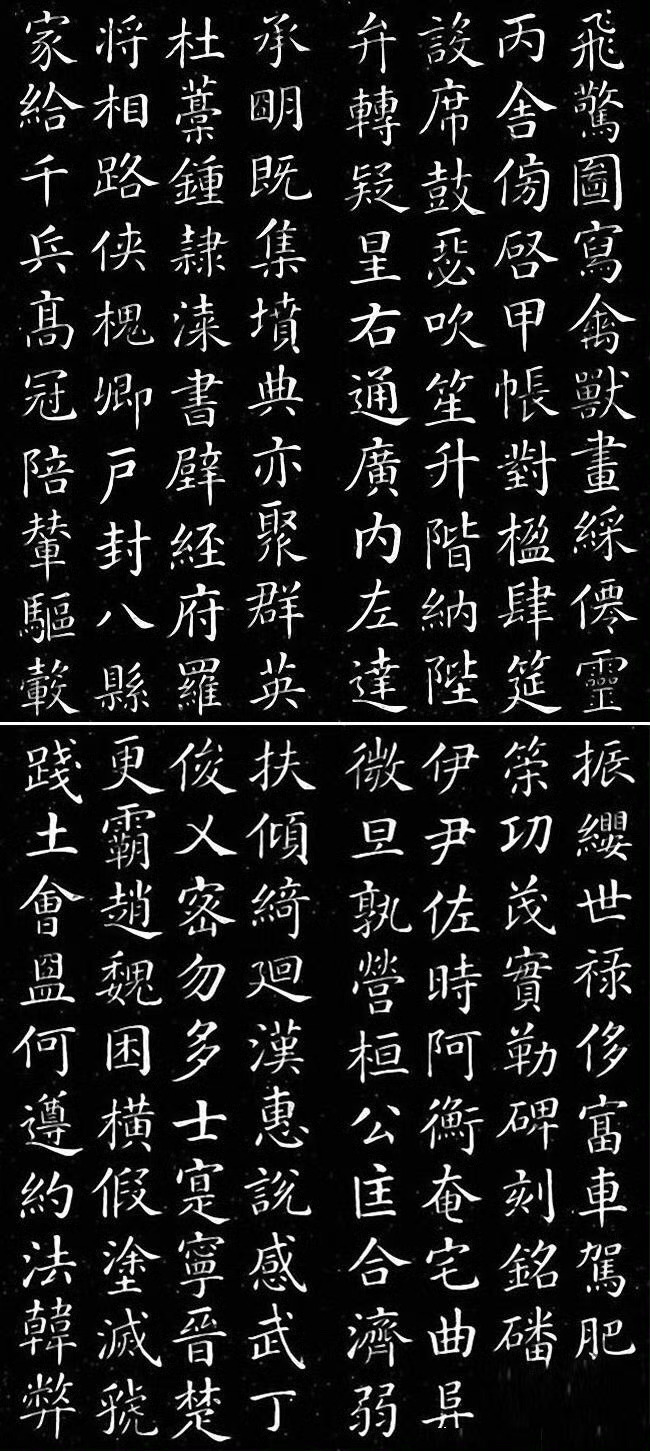 飛驚圖寫禽獸畫綵僊靈
丙舍傍啓甲帳對楹肆筵
設席鼓瑟吹笙升階納陛
弁轉疑星右通廣内左達
承明既集墳典亦聚群英
杜藁鍾隸漆書壁經府羅
将相路俠槐卿戶封八縣
家給千兵髙冠陪輦驅轂
振纓世禄侈富車駕肥
策功茂實勒碑刻銘磻
伊尹佐時阿衡奄宅曲阜
微旦孰營桓公匡合濟弱
扶傾綺迴漢惠說感武丁
俊乂密勿多士寔寧晉楚
更霸趙魏困橫假塗滅虢
踐土會盟何遵約法韓弊